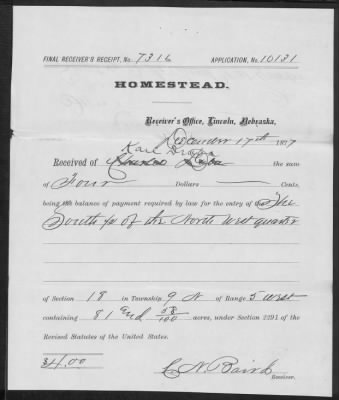 FINAL RECEIVER'S RECEIPT, No. 7316 APPLICATION, No. 10131
HOMESTEAD.
Receiver's Office, Lincoln, Nebraska,
December 17th 1877
Karl
Received of the sum
of Four Dollars Cents,
being the balance of payment required by law for the entry of The
South ½ of the North West quarter
of Section 18 in Township 9 N of Range 5 West
containing 81 and 58/100 acres, under Section 2291 of the
Revised Statutes of the United States.
$4.00
Baird
Receiver.